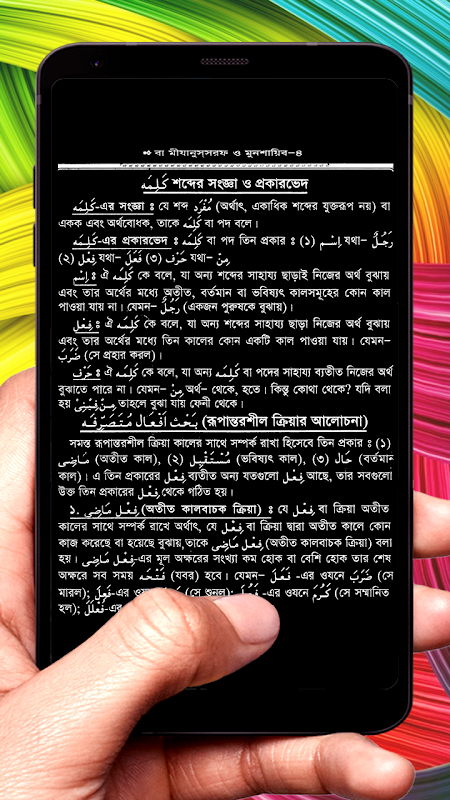 বা মীযানুস্সরফ ও মুনশায়িব–৪
كَلِمَه শব্দের সংজ্ঞা ও প্রকারভেদ
كَلِمَه-এর সংজ্ঞা : যে শব্দ مُفْرَد (অর্থাৎ, একাধিক শব্দের যুক্তরূপ নয়) বা
একক এবং অর্থবোধক, তাকে كَلِمَه বা পদ বলে।
كَلِمَه-এর প্রকারভেদ : كَلِمَه বা পদ তিন প্রকার : (১) اِسْم যথা– رَجُلٌ
(২) فِعْل যথা– فَعَلَ (৩) حَرْف যথা– مِنْ
اِسْم : ঐ كَلِمَه কে বলে, যা অন্য শব্দের সাহায্য ছাড়াই নিজের অর্থ বুঝায়
এবং তার অর্থের মধ্যে অতীত, বর্তমান বা ভবিষ্যৎ কালসমূহের কোন কাল
পাওয়া যায় না। যেমন– رَجُلٌ (একজন পুরুষকে বুঝায়)।
فِعْل : ঐ كَلِمَه কে বলে, যা অন্য শব্দের সাহায্য ছাড়া নিজের অর্থ বুঝায়
এবং তার অর্থের মধ্যে তিন কালের কোন একটি কাল পাওয়া যায়। যেমন–
ضَرَبَ (সে প্রহার করল)।
حَرْف : ঐ كَلِمَه কে বলে, যা অন্য كَلِمَه বা পদের সাহায্য ব্যতীত নিজের অর্থ
বুঝাতে পারে না। যেমন– مِنْ অর্থ– থেকে, হতে। কিন্তু কোথা থেকে? যদি বলা
হয় مِنْ فِيْنِىْ তাহলে বুঝা যায় ফেনী থেকে।
بَحْث اَفْعَال مُتَصَرِّفَه (রূপান্তরশীল ক্রিয়ার আলোচনা)
সমস্ত রূপান্তরশীল ক্রিয়া কালের সাথে সম্পর্ক রাখা হিসেবে তিন প্রকার : (১)
مَاضِى (অতীত কাল), (২) مُسْتَقْبِل (ভবিষ্যৎ কাল), (৩) حَال (বর্তমান
কাল)। এ তিন প্রকারের فِعْل ব্যতীত অন্য যতগুলো فِعْل আছে, তার সবগুলো
উক্ত তিন প্রকারের فِعْل থেকে গঠিত হয়।
১. فِعْل مَاضِى (অতীত কালবাচক ক্রিয়া) : যে فِعْل বা ক্রিয়া অতীত
কালের সাথে সম্পর্ক রাখে অর্থাৎ, যে فِعْل বা ক্রিয়া দ্বারা অতীত কালে কোন
কাজ করেছে বা হয়েছে বুঝায়,তাকে فِعْل مَاضِى (অতীত কালবাচক ক্রিয়া) বলা
হয়। فِعْل مَاضِى-এর মূল অক্ষরের সংখ্যা কম হোক বা বেশি হোক তার শেষ
অক্ষরে সব সময় فَتْحَه (যবর) হবে। যেমন– فَعَلَ -এর ওযনে ضَرَبَ (সে
মারল); فَعِلَ-এর (সে শুনল); فَعُلَ -এর ওযনে كَرُمَ (সে সম্মানিত
হল); فَعْلَلَ-এর